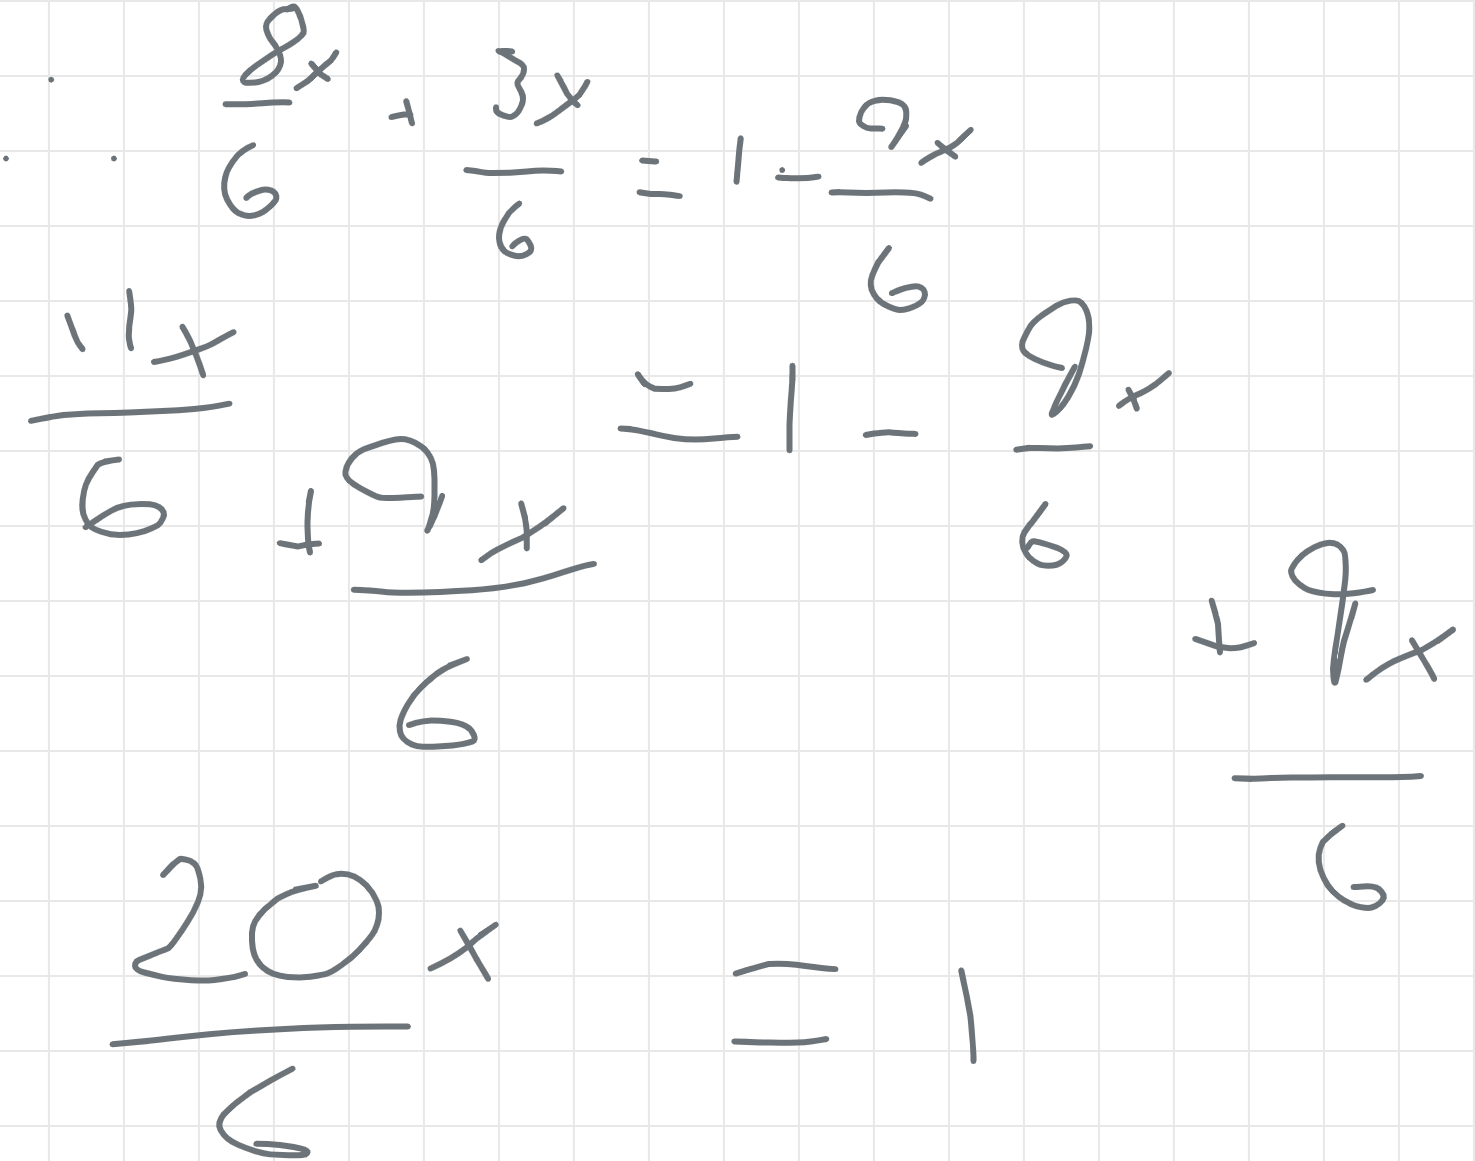 8x/6 + 3x/6 = 1 - 9x/6
11x/6 = 1 - 9x/6
+ 9x/6 + 9x/6
20x/6 = 1